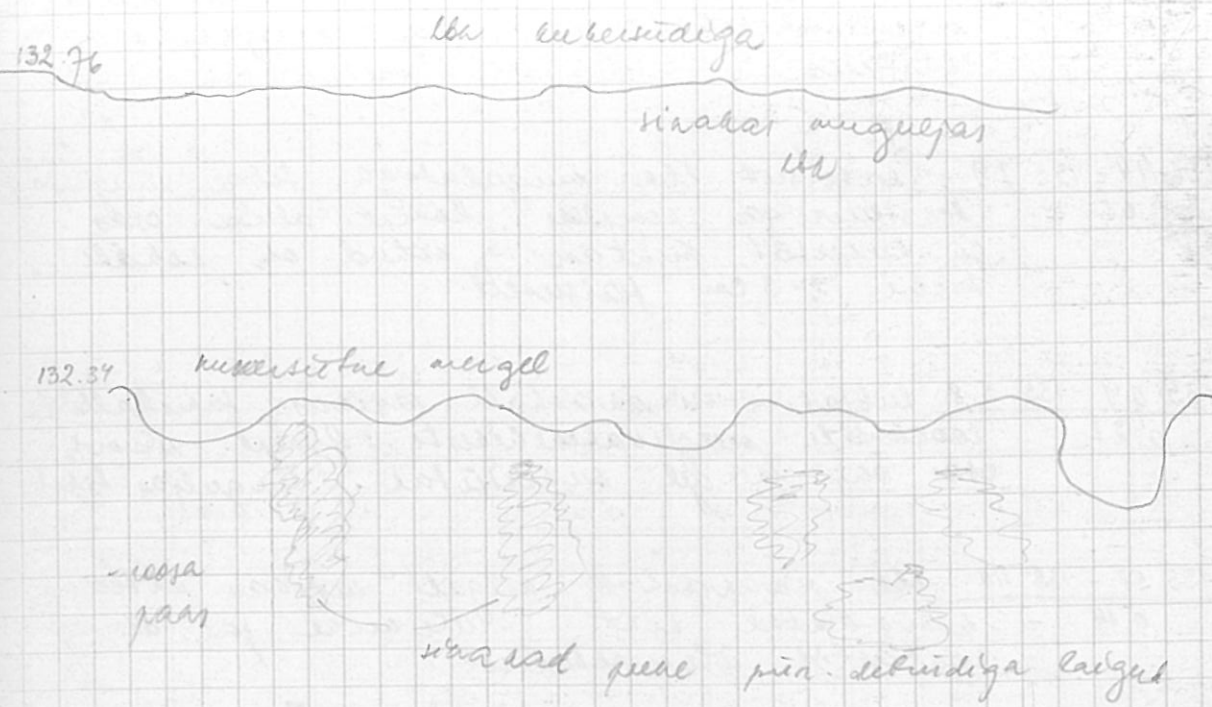 lbk kukersiidiga
132.76
sinakas muguljas
lbk
132.34 kukersiitne mergel
roosa
paas
sinakad peene pür. detriidiga laigud